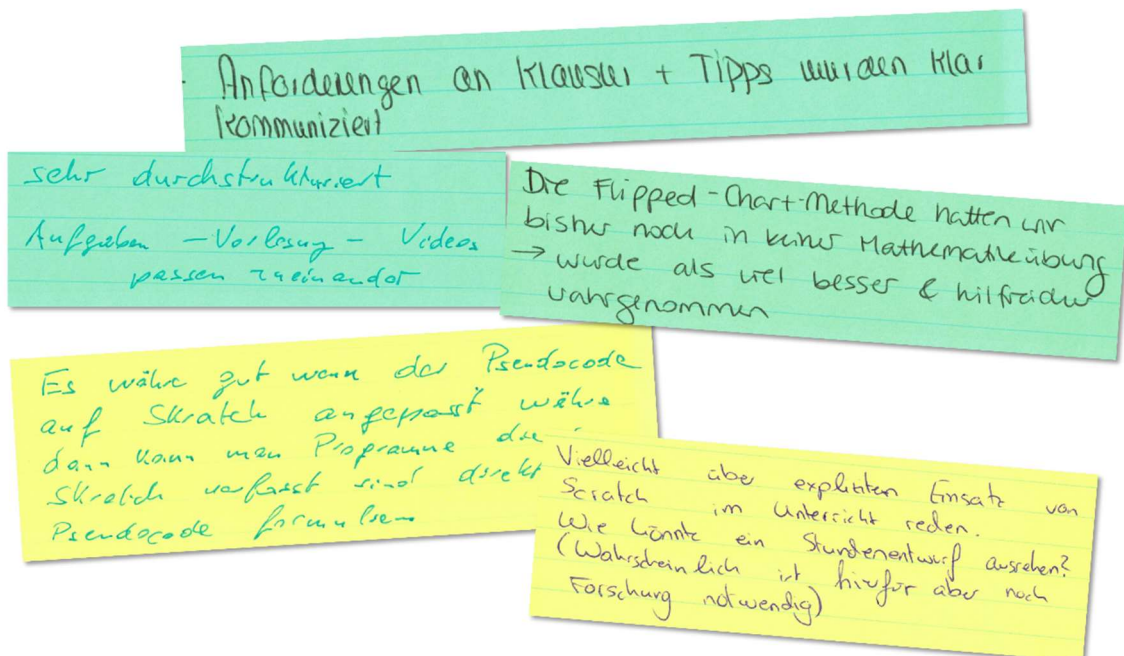 - Anforderungen an Klausur + Tipps wurden klar
kommuniziert
sehr durchstrukturiert
Aufgaben - Vorlesung - Videos
passen zueinander
Die Flipped-Chart-Methode hatten wir
bisher noch in keiner Mathematikübung
→ wurde als viel besser & hilfreicher
wahrgenommen
Es währe gut wenn der Pseudocode
auf Skratch angepasst währe
dann kann man Programme die
Skratch verfasst sind direkt
Pseudocode formulieren
Vielleicht über expliziten Einsatz von
Scratch im Unterricht reden.
Wie könnte ein Stundenentwurf aussehen?
(Wahrscheinlich ist hierfür aber noch
Forschung notwendig)